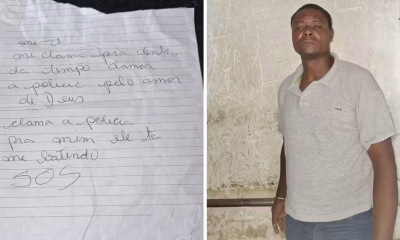 me chama pra dentro
da tempo chamar
a policia pelo amor
de Deus
chama a policia
pra mim ele ta
me batendo
SOS